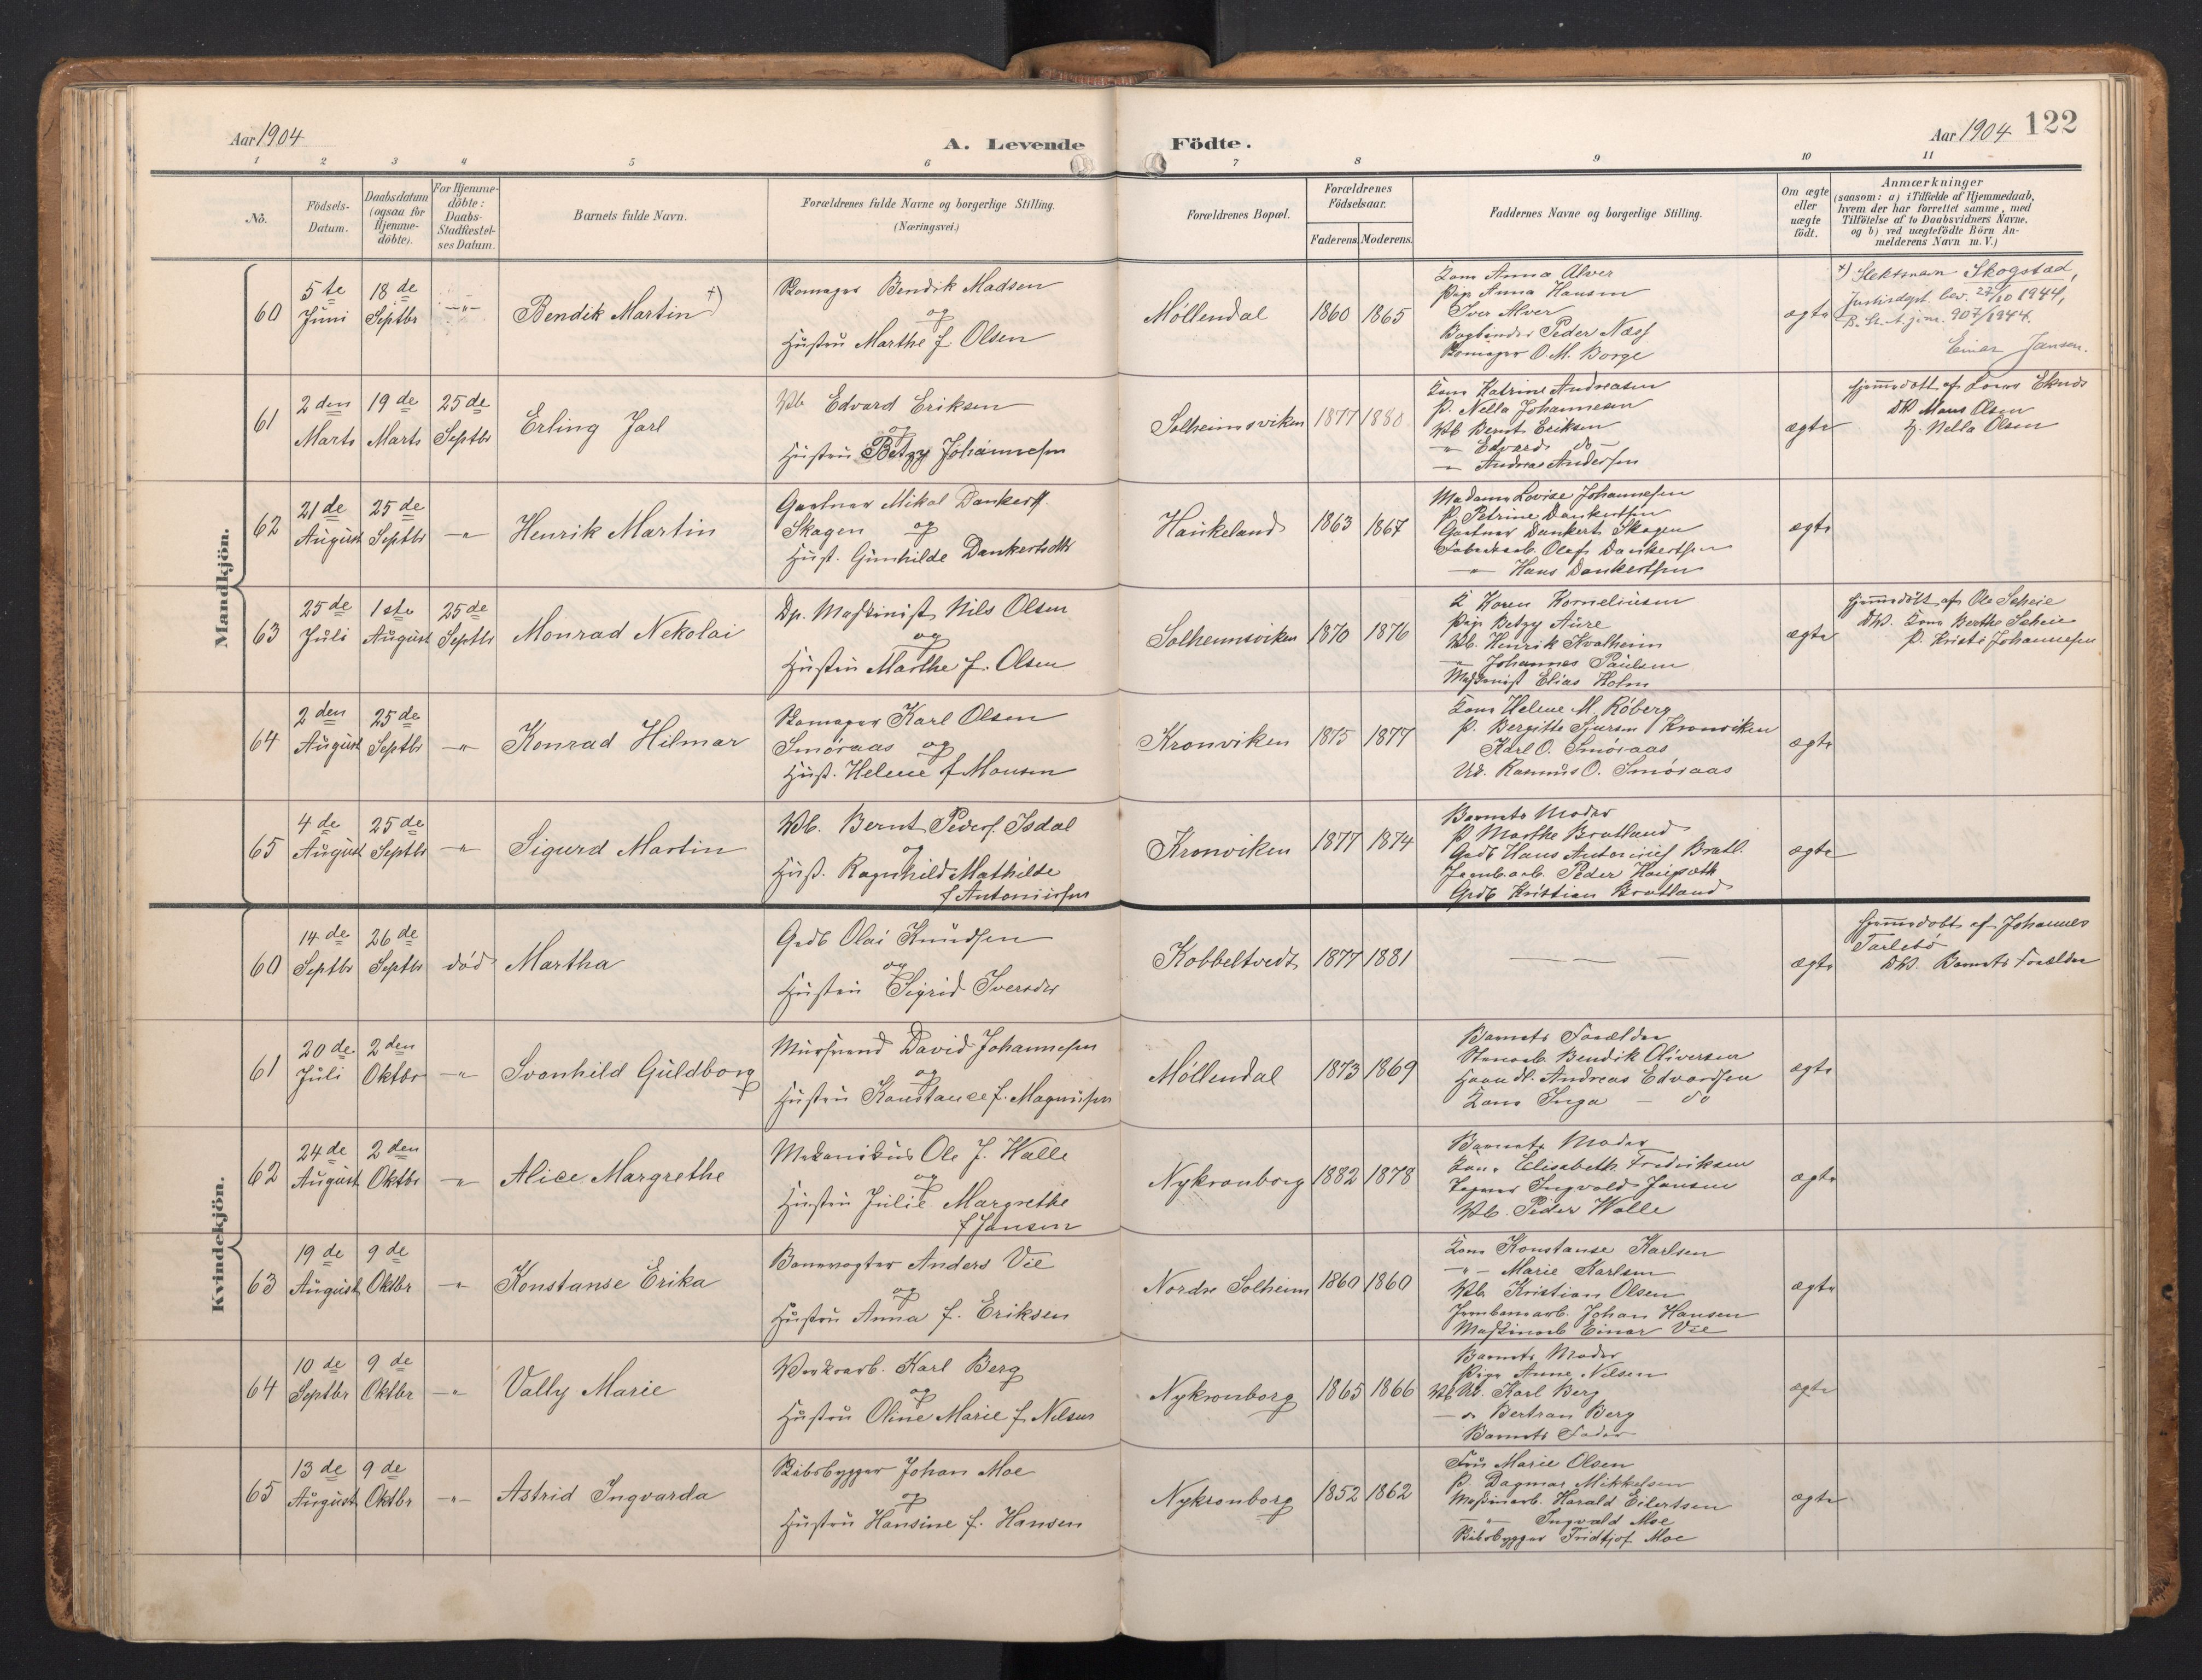 Aar 1904
A. Levende
Födte.
Aar 1904 122
1 2 3 4 5 6 7 8 9 10 11
No.
Födsels-Datum.
Daabsdatum (ogsaa for Hjemme-döbte).
For Hjemme-döbte: Daabs-Stadfæstel-ses Datum.
Barnets fulde Navn.
Forældrenes fulde Navne og borgerlige Stilling.
(Næringsvei.)
Forældrenes Bopæl.
Forældrenes Födselsaar.
Faderens. Moderens.
Faddernes Navne og borgerlige Stilling.
Om ægte eller uægte födt.
Anmærkninger
(saasom: a) i Tilfælde af Hjemmedaab,
hvem der har forrettet samme, med
Tilföielse af to Daabsvidners Navne.
og b) ved uægtefödte Börn An-
melderens Navn m. V.)
Mandkjön.
60 5te Juni 18de Septbr -"- Bendik Martin +)
Skomager Bendik Madsen
og
Hustru Marthe f. Olsen
Möllendal 1860 1865
Kone Anna Alver
Pige Anna Hansen
Iver Alver
Bogbinder Peder Næss
Skomager O. M. Borge
ægte
+) Slektsnavn Skogstad,
Justisdept. bev. 27/10 1944,
B. St. A. jnr. 907/1944.
Einar Jansen.
61 2den Marts 19de Marts 25de Septbr Erling Jarl
Edvard Eriksen
og
Hustru Betzy Johannesen
Solheimsviken 1877 1880
Kone Katrine Andreasen
P. Nella Johannesen
Bernt Eriksen
-"- Edvard do
-"- Andreas Andersen
ægte
Hjemmedöbt af Lovise Eknes
DV Mons Olsen
P. Nella Olsen
62 21de August 25de Septbr -"- Henrik Martin
Gartner Mikal Dankert
Skagen og
Hust. Gunhilde Dankertsdtr
Haukeland 1863 1867
Madame Lovise Johannesen
P. Petrine Dankertsen
Gartner Dankert Skagen
Fabrikarb. Olaf Dankertsen
-"- Hans Dankertsen
ægte
63 25de Juli 1ste August 25de Septbr Monrad Nekolai
Dp. Maskinist Nils Olsen
og
Hustru Marthe f. Olsen
Solheimsviken 1870 1876
K Koren Korneliusen
Pige Betzy Aure
Henrik Kvalheim
-"- Johannes Paulsen
Maskinist Elias Holm
ægte
Hjemmedöbt af Ole Scheie
DV. Kone Berthe Scheie
P. Kristi Johannesen
64 2den August 25de Septbr -"- Konrad Hilmar
Skomager Karl Olsen
Smöraas og
Hust. Helene f Monsen
Kronviken 1875 1877
Kone Helene M. Röberg
P. Bergitte Sjursen Kronviken
Karl O. Smöraas
Rasmus O. Smöraas
ægte
65 4de August 25de Septbr -"- Sigurd Martin
Bernt Peders. Isdal
og
Hust. Ragnhild Mathilde
f Antoniussen
Kronviken 1877 1874
Barnets Moder
P Marthe Bratland
Grdb Hans Antonius Bratl.
Jernb.arb. Peder
Grdb Kristian Bratland
ægte
Kvindekjön.
60 14de Septbr 26de Septbr död Martha
Grdb Olai Knudsen
og
Hustru Sigrid Iversdtr
Kobbeltvedt 1877 1881
— — —
ægte
Hjemmedöbt af Johannes
Tarlebö
DV. Barnets Forældre
61 20de Juli 2den Oktbr -"- Svanhild Guldborg
Mursvend David Johannesen
og
Hustru Konstance f. Magnusen
Möllendal 1873 1869
Barnets Forældre
Stenarb. Bendik Oliversen
Haandl. Andreas Edvardsen
Kone Inga - do
ægte
62 24de August 2den Oktbr -"- Alice Margrethe
Mekanikus Ole J. Walle
og
Hustru Julie Margrethe
f Jansen
Nykronborg 1882 1878
Barnets Moder
Kone Elisabeth Fredriksen
Ingvald Jansen
Peder Walle
ægte
63 19de August 9de Oktbr -"- Konstanse Erika
Banevogter Anders Vie
og
Hustru Anna f. Eriksen
Nordre Solheim 1860 1860
Kone Konstanse Karlsen
-"- Marie Karlsen
Kristian Olsen
Jernbanearb. Johan Hansen
Maskinarb Einar Vie
ægte
64 10de Septbr 9de Oktbr -"- Vally Marie
Værksarb. Karl Berg
og
Hustru Oline Marie f Nilsen
Nykronborg 1865 1866
Barnets Moder
Pige Anne Nilsen
Karl Berg
-"- Bertran Berg
Barnets Fader
ægte
65 13de August 9de Oktbr -"- Astrid Ingvarda
Skibsbygger Johan Moe
og
Hustru Hansine f. Hansen
Nykronborg 1852 1862
Fru Marie Olsen
P Dagmar Mikkelsen
Maskinarb. Harald Eilertsen
-"- Ingvald Moe
Skibsbygger Fridtjof Moe
ægte